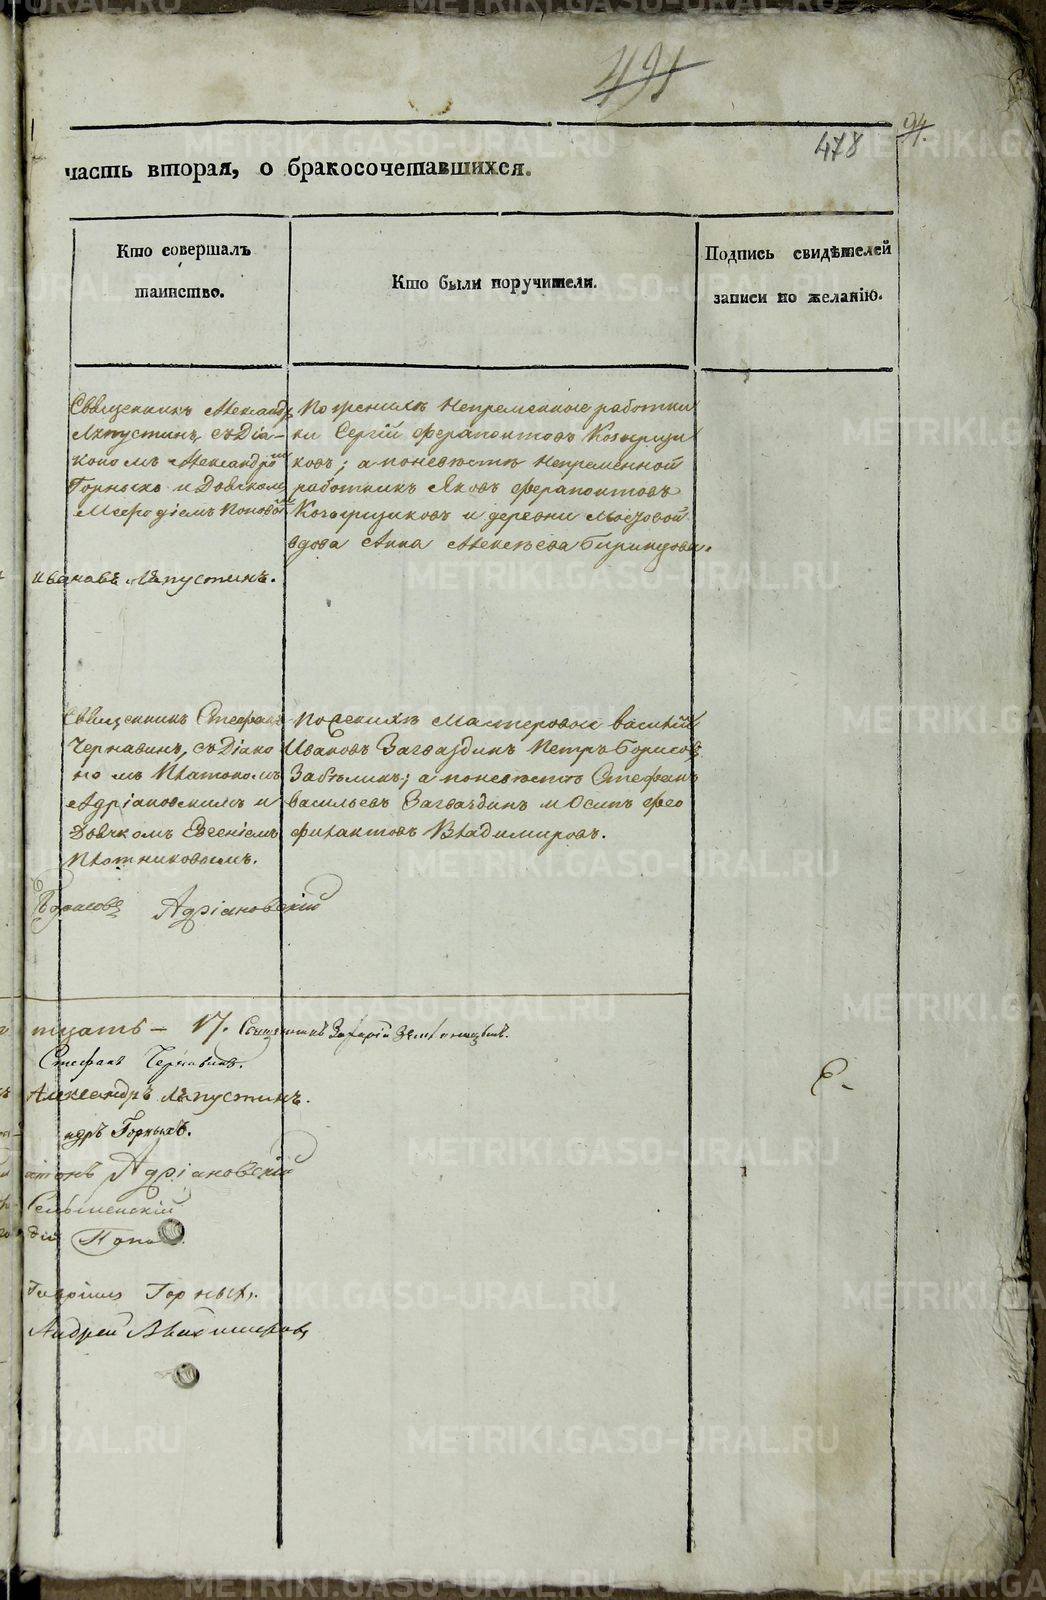 491
94.
478
часть вторая, о бракосочетавшихся.
Кто совершалъ
таинство.
Кто были поручители.
Подпись свидѣтелей
записи по желанію.
Священникъ Александръ
Ляпустинъ, съ Діа-
кономъ Александромъ
Горныхъ и Дьячкомъ
Меѳодіемъ Поповымъ
По женихѣ Непременные работни
ки Сергій Ферапонтовъ Кочерщи
ковъ; а по невѣстѣ Непременной
работникъ Яковъ Ферапонтовъ
Кочерщиковъ и деревни
вдова Анна Алексѣева
Ляпустинъ.
Священникъ Стефанъ
Чернавинъ, съ Діако
номъ Платономъ
Адріановскимъ и
Дьячкомъ Евгеніемъ
Плотниковымъ.
По женихѣ Мастеровые Василій
Ивановъ Загвоздинъ Петръ Борисовъ
Забѣлинъ; а по невѣстѣ Стефанъ
Васильевъ Загвоздинъ и Осипъ Фео
филактовъ Владимировъ.
Адріановскій
тцать — 17. Священникъ Захарій Земляницынъ.
Стефанъ Чернавинъ.
Александръ Ляпустинъ.
ндръ Горныхъ.
атонъ Адріановскій
дій Попо
Гавріилъ Горныхъ.
Андрей
METRIKI.GASO-URAL.RU